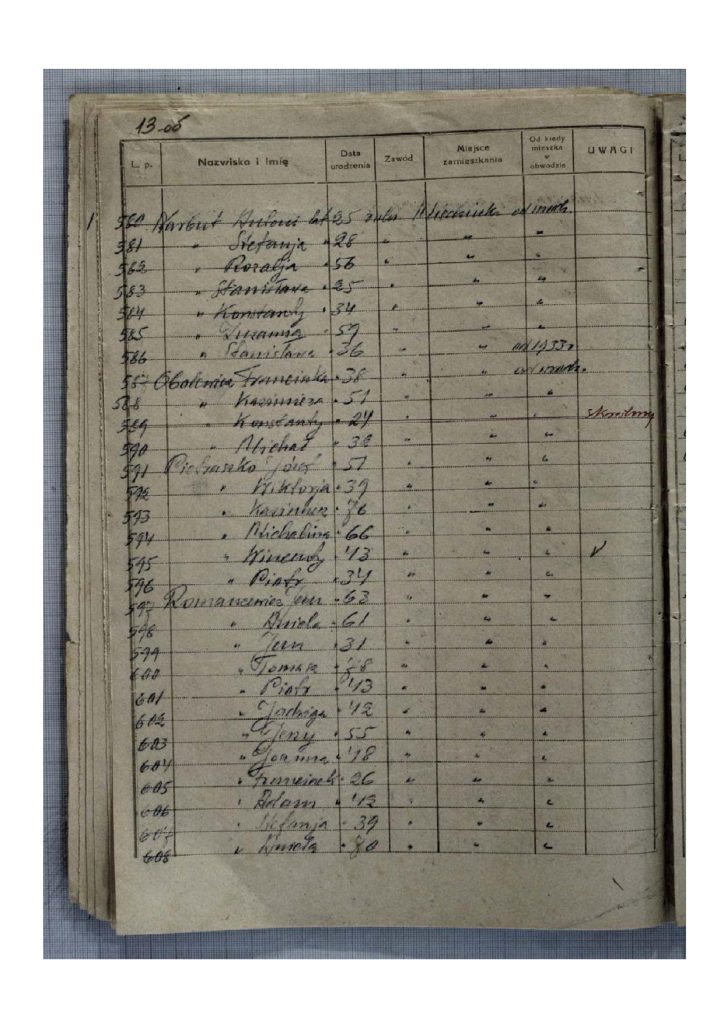 13 об
L. p. Nazwisko i Imię Data urodzenia Zawód Miejsce zamieszkania Od kiedy mieszka w obwodzie UWAGI
580 Narbut Antoni lat 25 roln od urodz.
581 " Stefanja " 28 " " "
582 " Rozalja " 56 " " "
583 " Stanisława " 25 " "
584 " Konstanty " 34 " " "
585 " Zuzanna " 57 " " "
586 " Stanisława " 36 " " od 1933 r.
587 Franciszka " 38 " " od urodz.
588 " Kazimiera " 51 " " "
589 " Konstanty " 24 " " " skreślony
590 " Michał " 38 " " "
591 Pietraszko Józef " 57 " " "
592 " Wiktorja " 39 " " "
593 " Kazimierz " 76 " " "
594 " Michalina " 66 " " "
595 " Wincenty " 43 " " " v
596 " Piotr " 34 " " "
597 Romancewicz Jan " 63 " " "
598 " Aniela " 61 " " "
599 " Jan " 31 " " "
600 " Tomasz " " " "
601 " Piotr " 43 " " "
602 " Jadwiga " 42 " " "
603 " Jerzy " 55 " " "
604 " Joanna " 48 " " "
605 " Franciszek " 26 " " "
606 " Adam " 42 " " "
607 " Stefanja " 39 " " "
608 " Aniela " 80 " " "